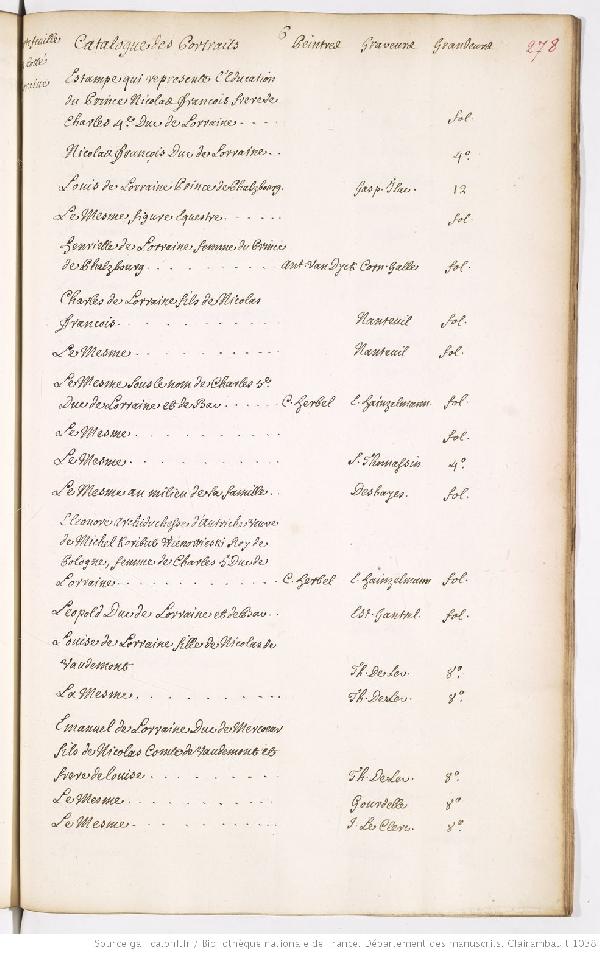 Catalogue des Portraits 6 Peintres Graveurs Grandeurs 278
Estampe qui represente l'Education
du Prince Nicolas François frere de
Charles 4e. Duc de Lorraine . . . . fol.
Nicolas François Duc de Lorraine . . 4o.
Louis de Lorraine Prince de Phalzbourg. Gasp. Isac. 12
Le Mesme figure Equestre . . . . . fol
Henriette de Lorraine femme du Prince
de Phalzbourg . . . . . . . . . Ant. Van Dyck Corn. Galle fol.
Charles de Lorraine fils de Nicolas
François . . . . . . . . . . . Nanteuil fol.
Le Mesme . . . . . . . . . . Nanteuil fol.
Le Mesme sous le nom de Charles 5e.
Duc de Lorraine et de Bar . . . . . C. Herbel E. Hainzelmann fol.
Le Mesme . . . . . . . . . . fol.
Le Mesme . . . . . . . . . . S. Thomassin 4o.
Le Mesme au milieu de sa famille . . Desbayes. fol.
Eleonore Archiduchesse d'Autriche Veuve
de Michel Koribut Wienowieski Roy de
Pologne, femme de Charles 5 Duc de
Lorraine . . . . . . . . . . . C. Herbel E. Hainzelmann fol.
Leopold Duc de Lorraine et de Bar . . Est. Gantrel fol.
Louise de Lorraine fille de Nicolas de
Vaudemont Th. De Leu 8o.
La Mesme . . . . . . . . . . Th. De Leu. 8o.
Emanuel de Lorraine Duc de Mercoeur
fils de Nicolas Comte de Vaudemont et
frere de Louise . . . . . . . . . Th. De Leu. 8o.
Le Mesme . . . . . . . . . . Gourdelle 8o.
Le Mesme . . . . . . . . . . J. Le Clerc. 8o.
Source gallica.bnf.fr / Bibliothèque nationale de France. Département des manuscrits. Clairambault 1038